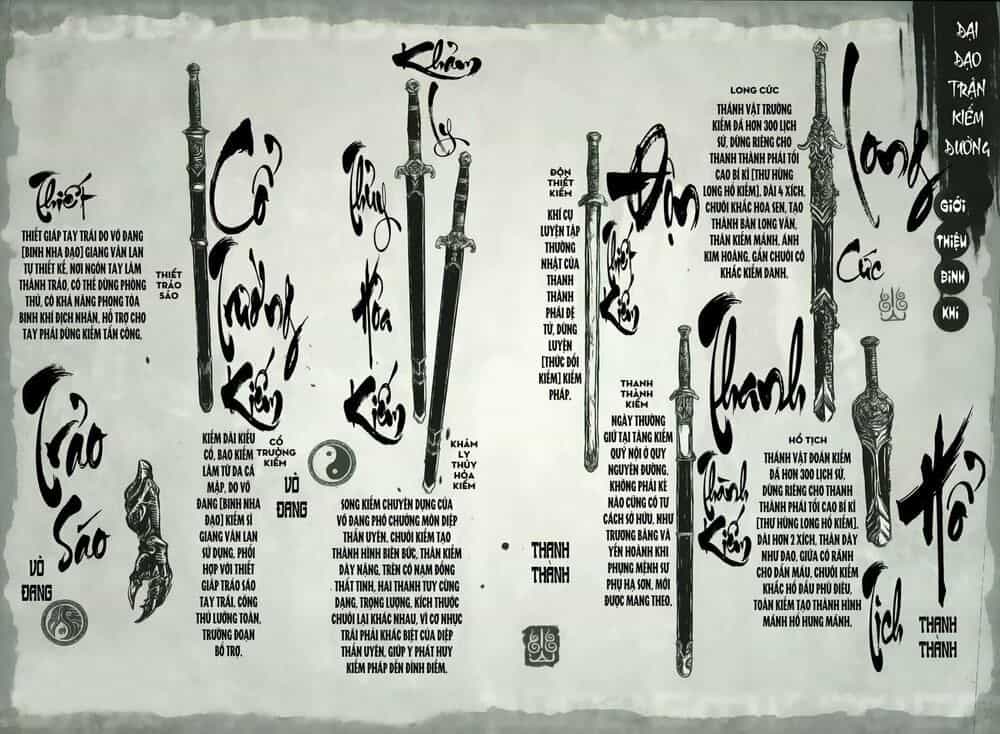 ĐẠI
ĐẠO
TRẬN
KIẾM
ĐƯỜNG
GIỚI
THIỆU
BINH
KHÍ
Long
Cức
LONG CỨC
THÁNH VẬT TRƯỜNG
KIẾM ĐÃ HƠN 300 LỊCH
SỬ, DÙNG RIÊNG CHO
THANH THÀNH PHÁI TỐI
CAO BÍ KÍ [THƯ HÙNG
LONG HỔ KIẾM]. DÀI 4 XÍCH,
CHUÔI KHẮC HOA SEN, TẠO
THÀNH BÀN LONG VÂN,
THÂN KIẾM MẢNH, ÁNH
KIM HOÀNG, GẦN CHUÔI CÓ
KHẮC KIẾM DANH.
Hổ
Tịch
HỔ TỊCH
THÁNH VẬT ĐOẢN KIẾM
ĐÃ HƠN 300 LỊCH SỬ,
DÙNG RIÊNG CHO THANH
THÀNH PHÁI TỐI CAO BÍ KÍ
[THƯ HÙNG LONG HỔ KIẾM].
DÀI HƠN 2 XÍCH, THÂN DÀY
NHƯ DAO, GIỮA CÓ RÃNH
CHO DẪN MÁU, CHUÔI KIẾM
KHẮC HỔ ĐẦU PHÙ ĐIÊU,
TOÀN KIẾM TẠO THÀNH HÌNH
MÃNH HỔ HUNG MÃNH.
THANH
THÀNH
Độn
Thiết
Kiếm
ĐỘN
THIẾT
KIẾM
KHÍ CỤ
LUYỆN TẬP
THƯỜNG
NHẬT CỦA
THANH
THÀNH
PHÁI ĐỆ
TỬ, DÙNG
LUYỆN
[THỨC ĐÔI
KIẾM] KIẾM
PHÁP.
Thanh
Thành
Kiếm
THANH
THÀNH
KIẾM
NGÀY THƯỜNG
GIỮ TẠI TÀNG KIẾM
QUỸ NỘI Ở QUY
NGUYÊN ĐƯỜNG,
KHÔNG PHẢI KẺ
NÀO CŨNG CÓ TƯ
CÁCH SỞ HỮU, NHƯ
TRƯƠNG BẰNG VÀ
YẾN HOÀNH KHI
PHỤNG MỆNH SƯ
PHỤ HẠ SƠN, MỚI
ĐƯỢC MANG THEO.
THANH
THÀNH
Khảm
Ly
Thủy
Hỏa
Kiếm
KHẢM
LY THỦY
HỎA
KIẾM
SONG KIẾM CHUYÊN DỤNG CỦA
VÕ ĐANG PHÓ CHƯỞNG MÔN DIỆP
THẦN UYÊN. CHUÔI KIẾM TẠO
THÀNH HÌNH BIÊN BỨC, THÂN KIẾM
DÀY NẶNG, TRÊN CÓ NẠM ĐỒNG
THẤT TINH, HAI THANH TUY CÙNG
DẠNG, TRỌNG LƯỢNG, KÍCH THƯỚC
CHUÔI LẠI KHÁC NHAU, VÌ CƠ NHỤC
TRÁI PHẢI KHÁC BIỆT CỦA DIỆP
THẦN UYÊN, GIÚP Y PHÁT HUY
KIẾM PHÁP ĐẾN ĐỈNH ĐIỂM.
Cổ
Trường
Kiếm
CỔ
TRƯỜNG
KIẾM
KIẾM DÀI KIỂU
CỔ, BAO KIẾM
LÀM TỪ DA CÁ
MẬP, DO VÕ
ĐANG [BINH NHA
ĐẠO] KIẾM SĨ
GIANG VÂN LAN
SỬ DỤNG, PHỐI
HỢP VỚI THIẾT
GIÁP TRẢO SÁO
TAY TRÁI, CÔNG
THỦ LƯỠNG TOÀN,
TRƯỜNG ĐOẢN
BỔ TRỢ.
VÕ
ĐANG
Thiết
Trảo
Sáo
THIẾT
TRẢO
SÁO
THIẾT GIÁP TAY TRÁI DO VÕ ĐANG
[BINH NHA ĐẠO] GIANG VÂN LAN
TỰ THIẾT KẾ, NƠI NGÓN TAY LÀM
THÀNH TRẢO, CÓ THỂ DÙNG PHÒNG
THỦ, CÓ KHẢ NĂNG PHONG TỎA
BINH KHÍ ĐỊCH NHÂN, HỖ TRỢ CHO
TAY PHẢI DÙNG KIẾM TẤN CÔNG.
VÕ
ĐANG